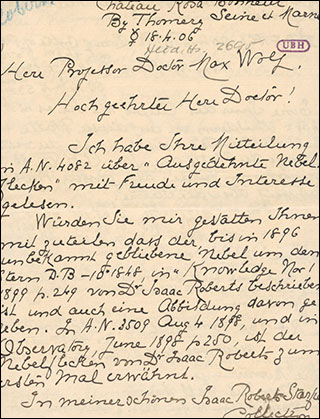 Chateau Rosa Bonheur
By Thomery Seine et Marne
♀ 18.4.06
Heid. Hs. 2695
UBH
Herr Professor Doctor Max Wolf.
Hochgeehrter Herr Doctor!
Ich habe Ihre Mitteilung
in A.N. 4082 über "Ausgedehnte Nebel
flecken" mit Freude und Interesse
gelesen.
Würden Sie mir gestatten Ihnen
mit zuteilen dass der, bis in 1896
unbekannt gebliebene Nebel um den
Stern D.B -10° 1848, in "Knowledge Nov 1
1899 p. 249 von Dr Isaac Roberts beschrieben
ist und auch eine Abbildung davon ge
geben. In A.N. 3509 Aug 4 1898, und in
Observatory, June 1898 p 250, ist der
Nebelflecken von Dr Isaac Roberts zum
ersten Mal erwähnt.
In meiner schönen Isaac Roberts Starfield
Collection